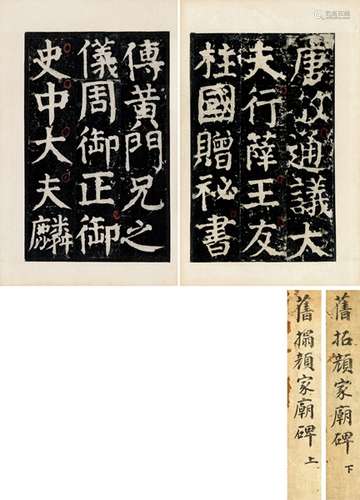 唐故通議大
夫行薛王友
柱國贈祕書
傳黃門兄之
儀周御正御
史中大夫麟
舊拓顏家廟碑 下
舊搨顏家廟碑 上